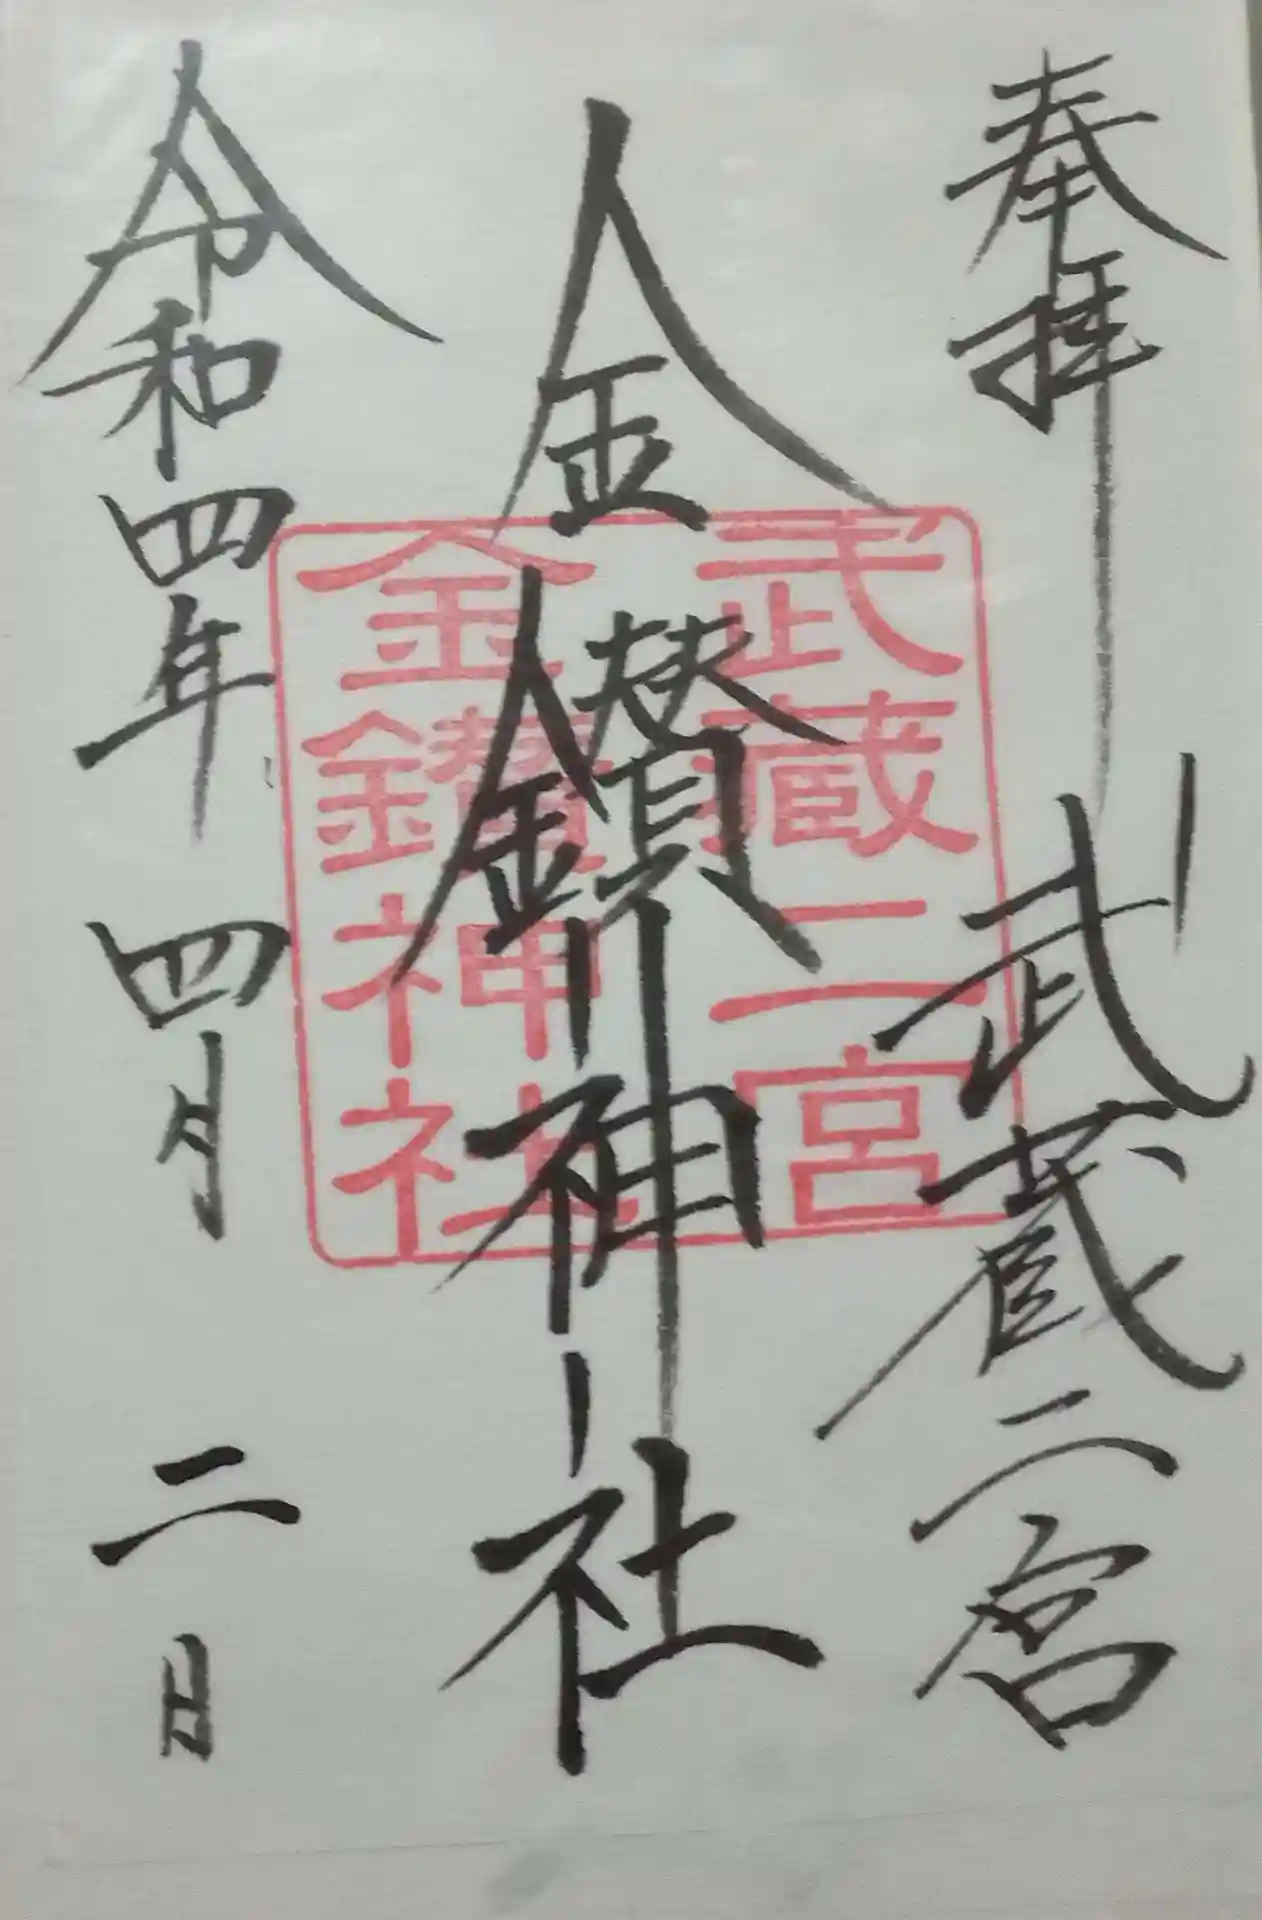 奉拝 武蔵二宮
金鑚神社
令和四年四月二日
武蔵二宮
金鑚神社